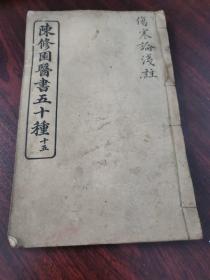 傷寒論淺註
陳修園醫書五十種 十五